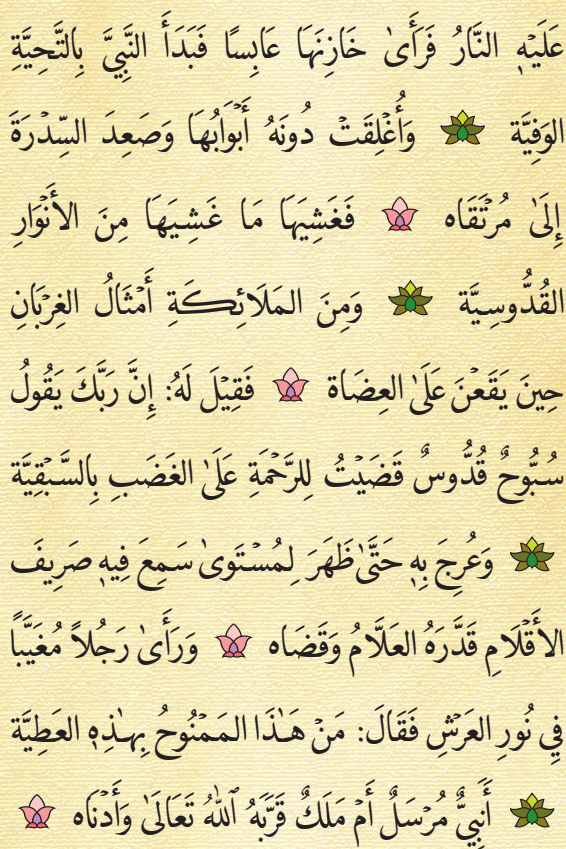 عَلَيْهِ النَّارُ فَرَأَىٰ خَازِنَهَا عَابِسًا فَبَدَأَ النَّبِيَّ بِالتَّحِيَّةِ
الوَفِيَّة وَأُغْلِقَتْ دُونَهُ أَبْوَابُهَا وَصَعِدَ السِّدْرَةَ
إِلَىٰ مُرْتَقَاه فَغَشِيَهَا مَا غَشِيَهَا مِنَ الأَنْوَارِ
القُدُّوسِيَّة وَمِنَ المَلَائِكَةِ أَمْثَالُ الغِرْبَانِ
حِينَ يَقَعْنَ عَلَىٰ العِضَاة فَقِيْلَ لَهُ: إِنَّ رَبَّكَ يَقُولُ
سُبُّوحٌ قُدُّوسٌ قَضَيْتُ لِلرَّحْمَةِ عَلَىٰ الغَضَبِ بِالسَّبْقِيَّة
وَعُرِجَ بِهِ حَتَّىٰ ظَهَرَ لِمُسْتَوىٰ سَمِعَ فِيهِ صَرِيفَ
الأَقْلَامِ قَدَّرَهُ العَلَّامُ وَقَضَاه وَرَأَىٰ رَجُلاً مُغَيَّباً
فِي نُورِ العَرْشِ فَقَالَ: مَنْ هَـٰذَا المَمْنُوحُ بِهـٰذِهِ العَطِيَّة
أَنَبِيٌّ مُرْسَلٌ أَمْ مَلَكٌ قَرَّبَهُ ٱللهُ تَعَالَىٰ وَأَدْنَاه